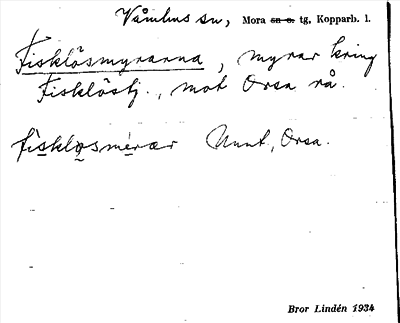 Våmhus sn, Mora sn o. tg, Kopparb. l.
Fisklösmyrarna, myrar kring
Fisklöstj., mot Orsa rå.
fisklosmèrær Uunt, Orsa.
Bror Lindén 1934